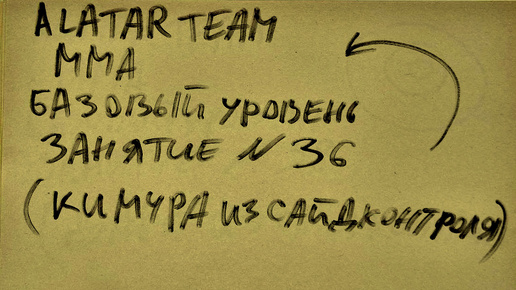 ALATAR TEAM
MMA
БАЗОВЫЙ УРОВЕНЬ
ЗАНЯТИЕ N36
(КИМУРА ИЗ САЙДКОНТРОЛЯ)